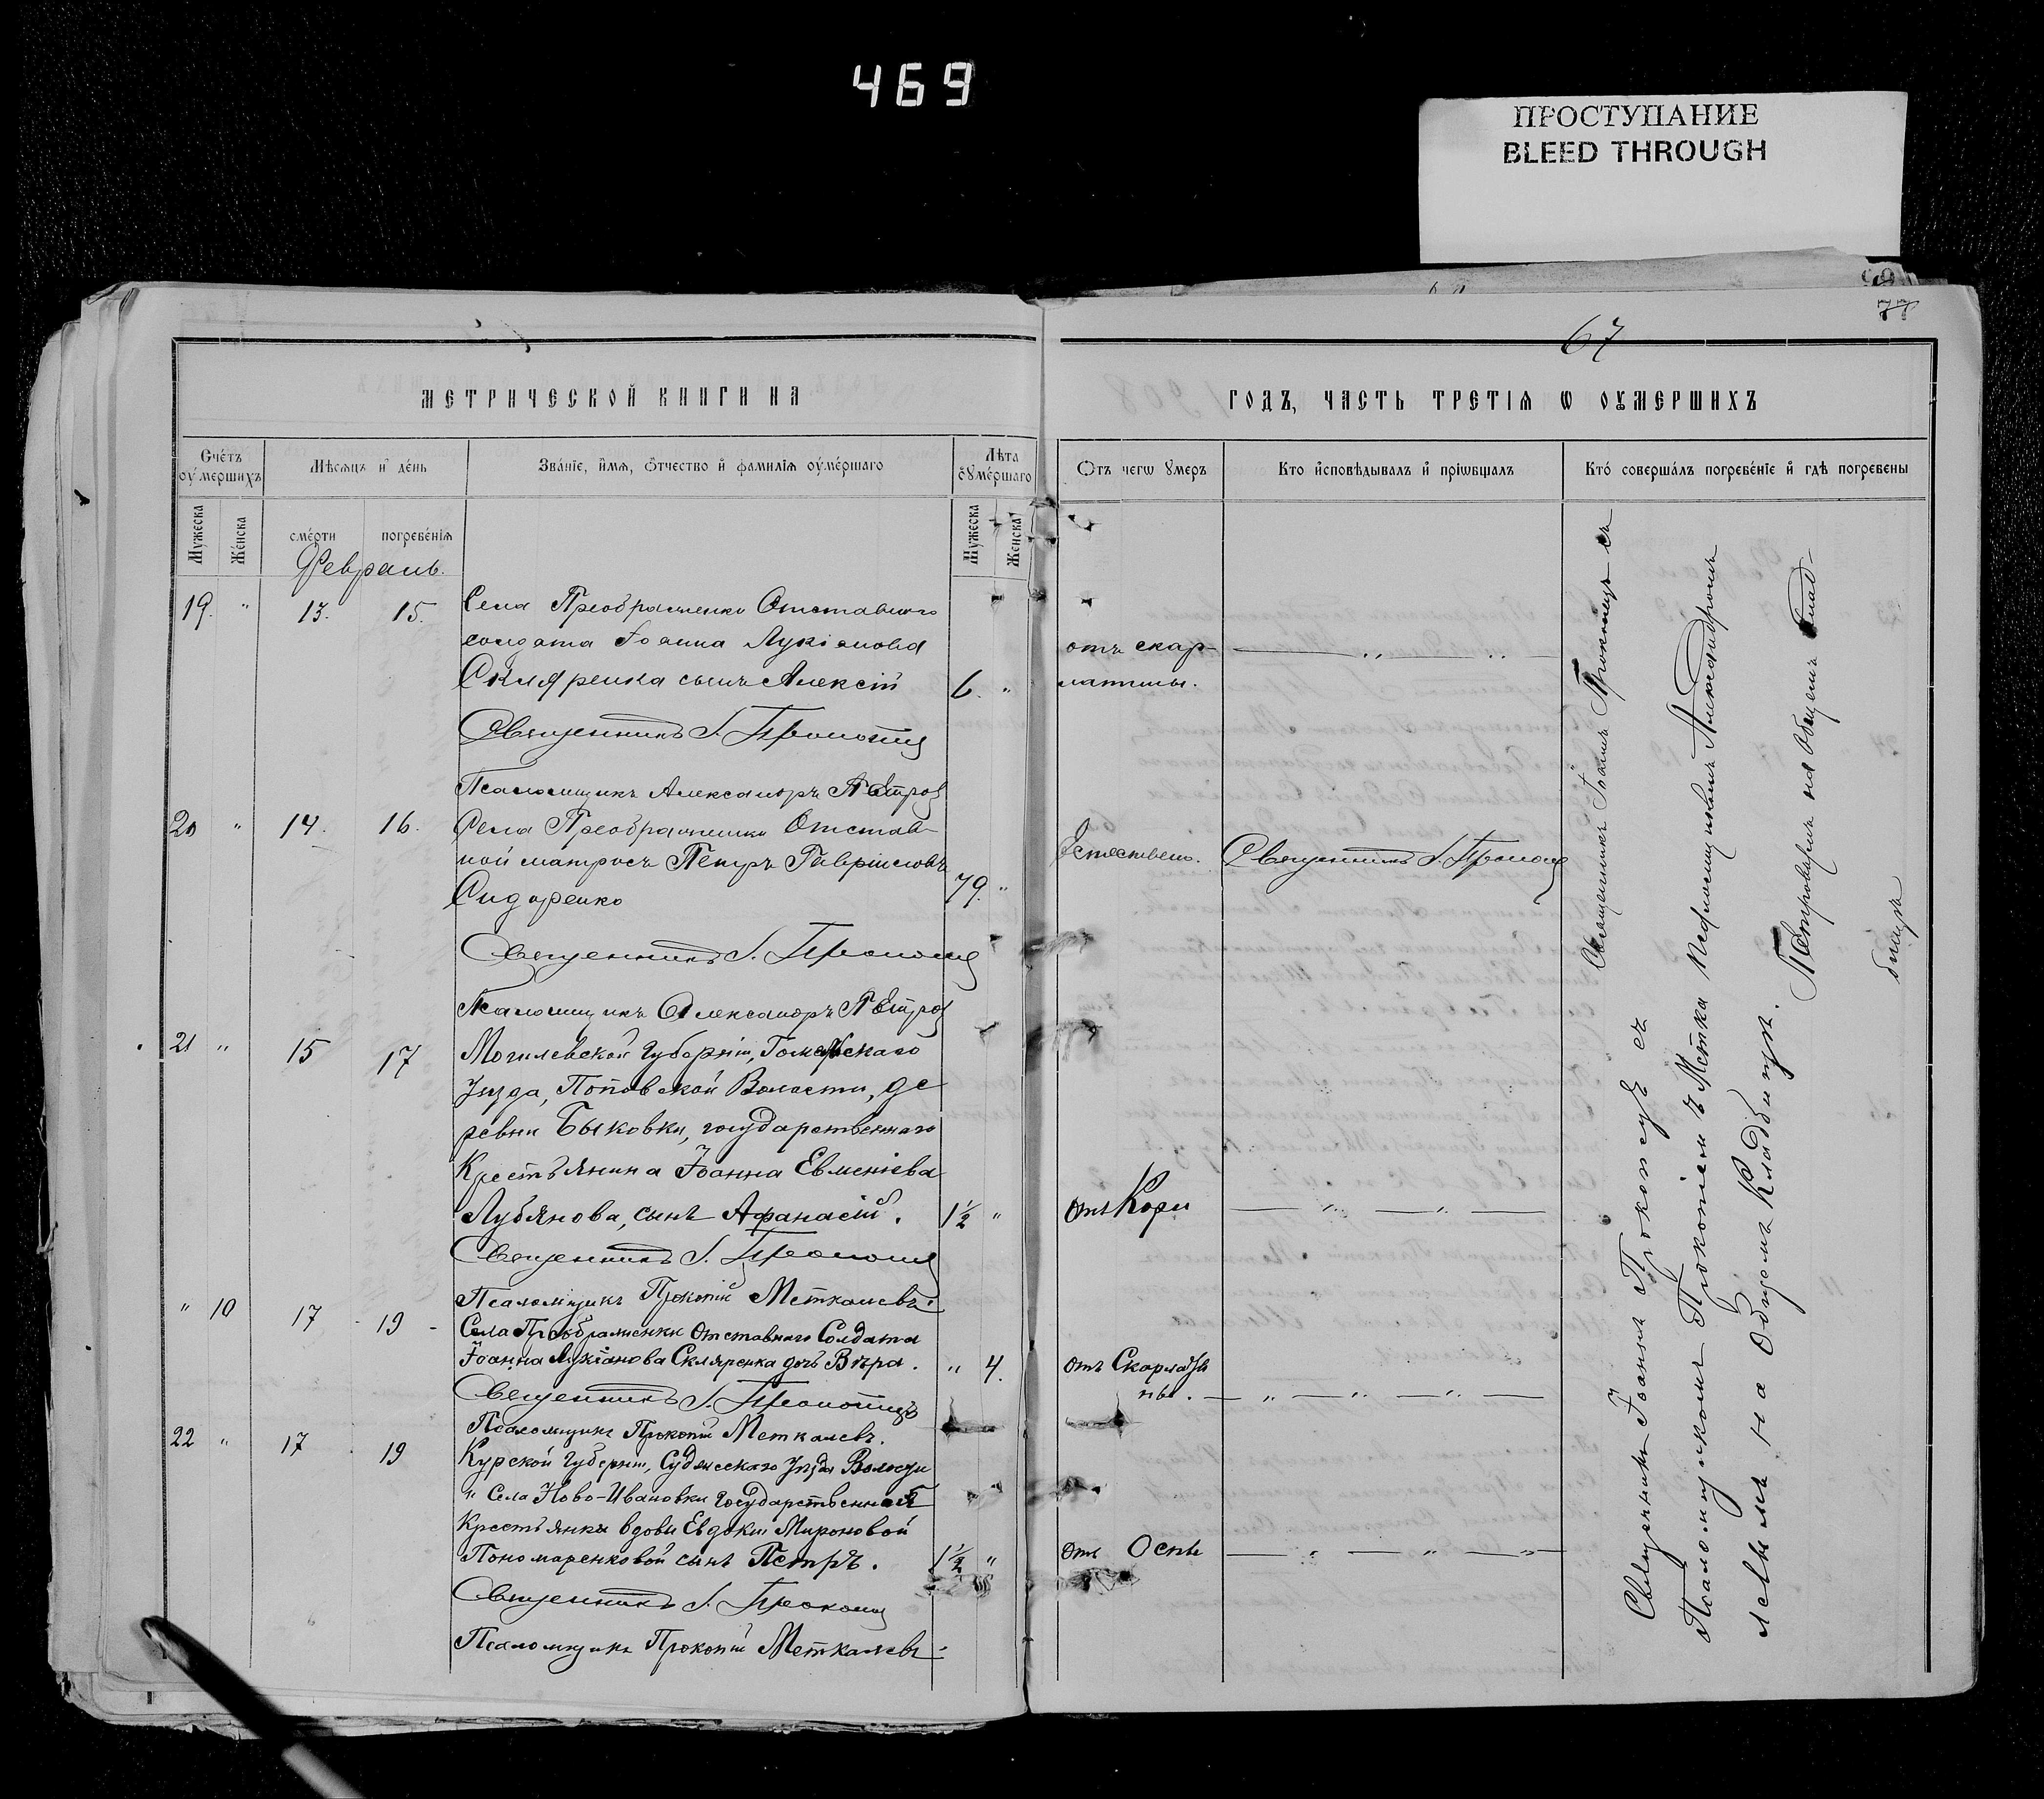 469
ПРОСТУПАНИЕ
BLEED THROUGH
77
67
МЕТРИЧЕСКОЙ КНИГИ НА
ГОДЪ, ЧАСТЬ ТРЕТІѦ Ѡ ОУМЕРШИХЪ
Счетъ оумершихъ
Мѣсѧцъ и день
Званіе, имѧ, ѿчество и фамиліѧ оумершаго
Лѣта оумершаго
Отъ чегѡ умеръ
Кто исповѣдывалъ и пріѡбщалъ
Кто совершалъ погребеніе и гдѣ погребены
Мужеска
Женска
смерти
погребеніѧ
Мужеска
Женска
Февраль.
19. " 13. 15. Села Преображенки Отставного
солдата Іоанна Лукіанова
Скляренка сынъ Алексій 6. "
отъ скар-
латины.
Священникъ І. Прокопецъ
Псаломщикъ Александръ Петров
20 " 14. 16. Села Преображенки Отстав-
ной матросъ Петръ Гавріиловъ
Сидоренко 79. "
Естествен. Священникъ І. Прокопец
Священникъ І. Прокопец
Псаломщикъ Александръ Петров
21 " 15 17 Могилевской Губерніи, Гомельскаго
Уѣзда, Поповской Волости, де
ревни Быковки, государственнаго
Крестьянина Іоанна Евменіева
Лубянова, сынъ Афанасій. 1½ "
отъ Кори
Священникъ І. Прокопец
Псаломщикъ Прокопій Меткалевъ.
" 10 17 - 19 - Села Преображенки Отставного Солдата
Іоанна Лукіанова Скляренка дочь Вѣра. " 4.
отъ Скарлати
ны.
Священникъ І. Прокопецъ
Псаломщикъ Прокопій Меткалевъ.
22 " 17 . 19 Курской Губерніи, Суджескаго Уѣзда Волости
" Села Ново-Ивановки государственной
Крестьянки вдовы Евдокіи Мироновой
Пономаренковой сынъ Петръ. 1½ "
отъ Оспы
Священникъ І. Прокопец
Псаломщикъ Прокопій Меткалевъ.
Священникъ Іоаннъ Прокопецъ съ
Псаломщикомъ Александромъ
Петровымъ на общемъ клад-
бищѣ
Священникъ Іоаннъ Прокопецъ съ
Псаломщикомъ Прокопіемъ Метка
левымъ на Общемъ Кладбищѣ.